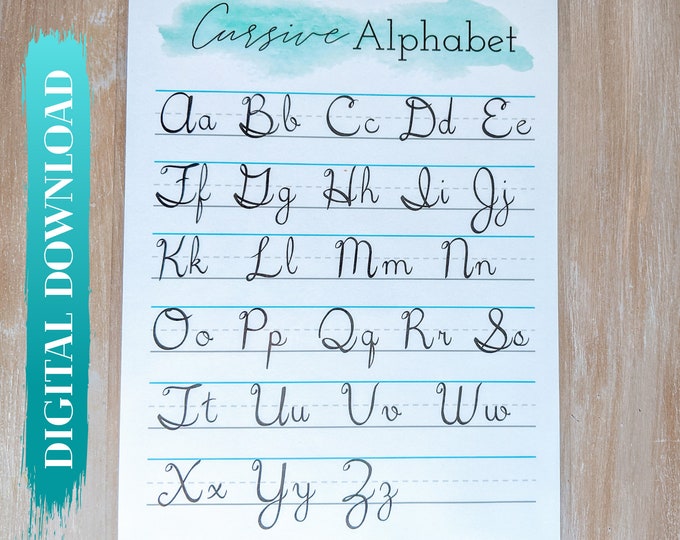 DIGITAL DOWNLOAD
Cursive Alphabet
Aa Bb Cc Dd Ee
Ff Gg Hh Ii Jj
Kk Ll Mm Nn
Oo Pp Qq Rr Ss
Tt Uu Vv Ww
Xx Yy Zz